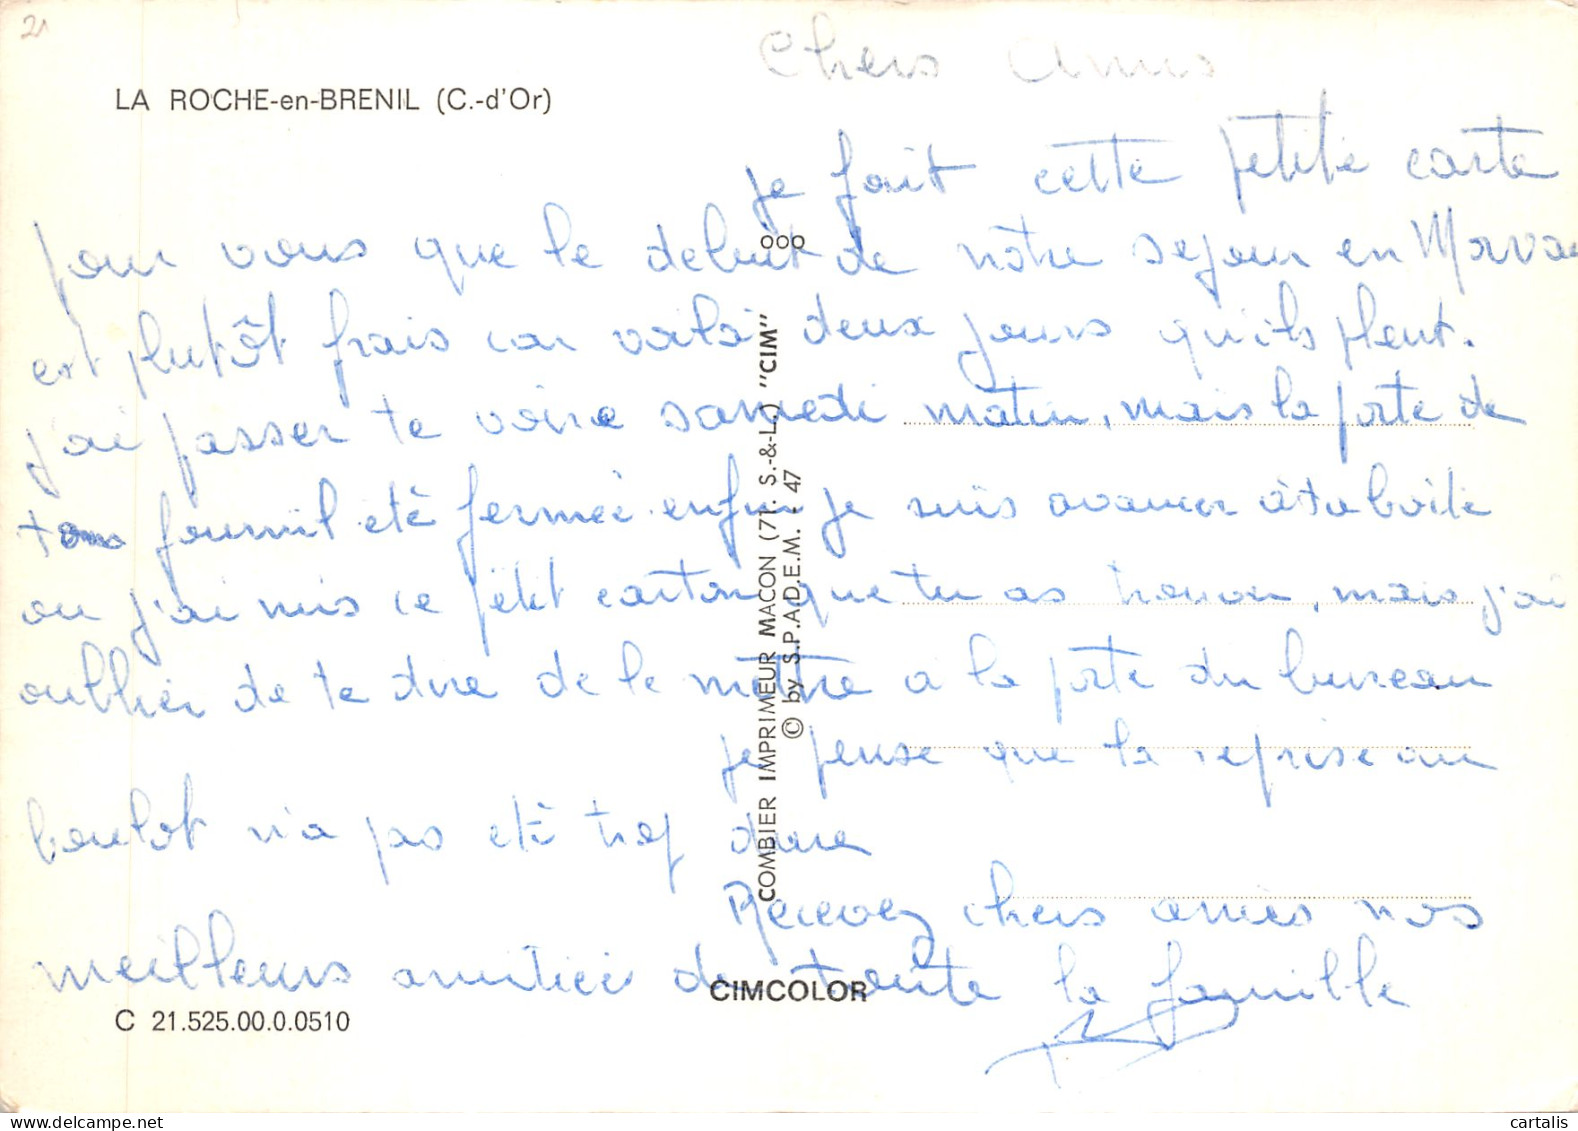 21
LA ROCHE-en-BRENIL (C.-d'Or)
Chers Amis
je fait cette petite carte
pour vous que le debut de notre sejour en Morvan
est plutôt frais car voilà deux jours qu'ils pleut.
j'ai passer te voire samedi matin, mais la porte de
ton fournil eté fermée enfin je suis avancer à ta boite
ou j'ai mis ce petit carton que tu as trouver, mais j'ai
oublier de te dire de le mettre a la porte du bureau
je pense que la reprise au
boulot n'a pas etè trop dure
Recevez chers amies nos
meilleurs amitiées de toute la famille
CIMCOLOR
C 21.525.00.0.0510
COMBIER IMPRIMEUR MACON (71. S.-&-L.) "CIM"
© by S.P.A.D.E.M. - 47
cartalis